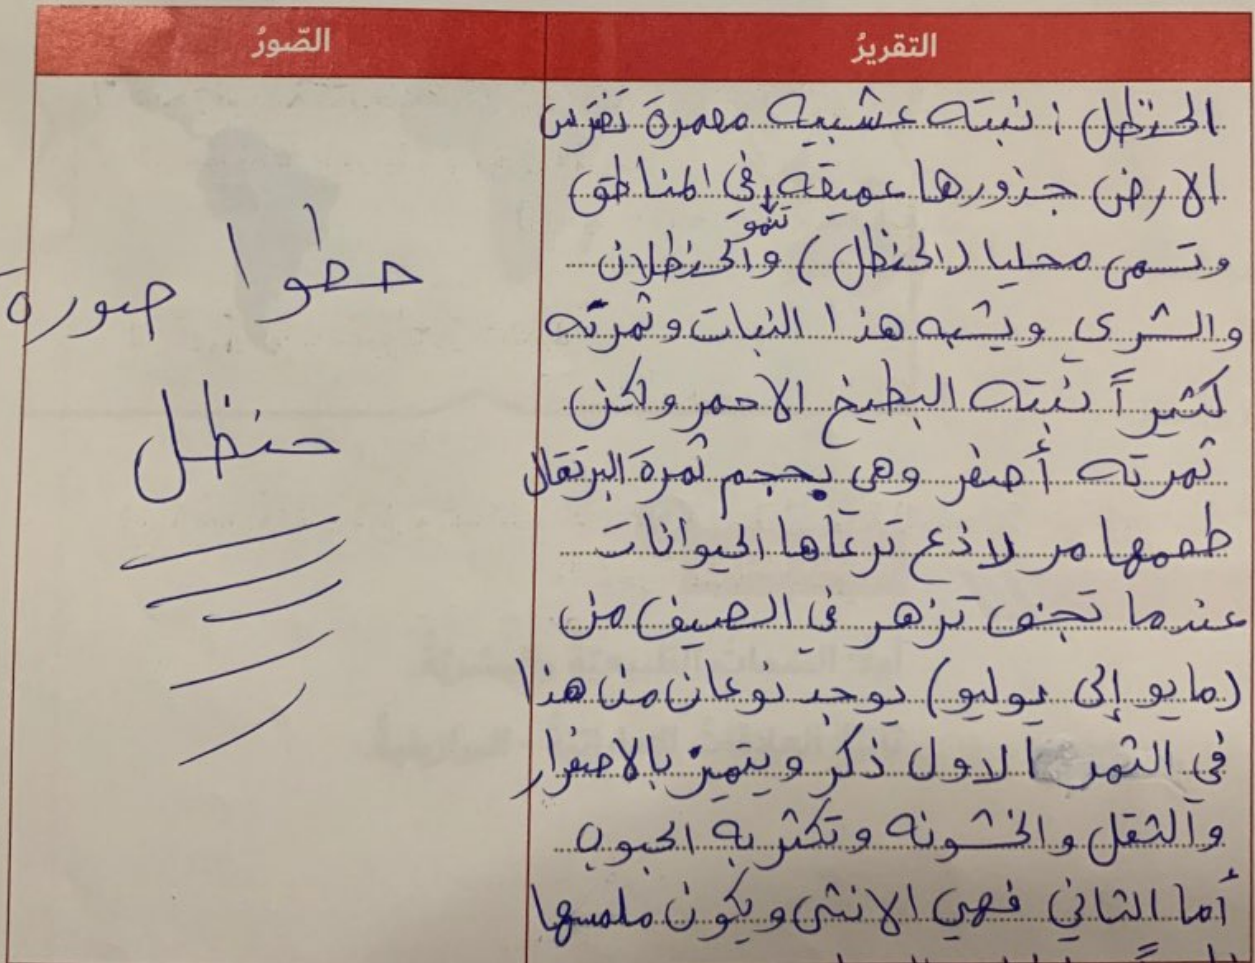 التقريرُ
الحنظل : نبته عشبيه معمرة تفترس
الارض جذورها عميقه في المناطق
تنمو
وتسمى محليا (الحنظل) والحنظلان
والشري ويشبه هذا النبات وثمرته
كثيراً نبته البطيخ الأحمر ولكن
ثمرته أصفر وهي بحجم ثمرة البرتقال
طعمها مر لاذع ترعاها الحيوانات
عندما تجف تزهر في الصيف من
(مايو إلى يوليو) يوجد نوعان من هذا
في الثمر الاول ذكر ويتميز بالاصفرار
والثقل والخشونه وتكثر به الحبوب
أما الثاني فهي الانثى ويكون ملمسها
الصّورُ
حطوا صورة
حنظل